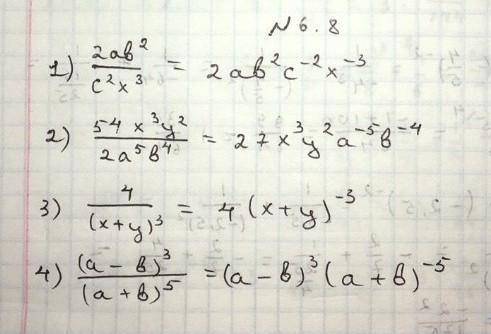 N 6.8
1) 2ab²/c²x³ = 2ab²c⁻²x⁻³
2) 54x³y²/2a⁵b⁴ = 27x³y²a⁻⁵b⁻⁴
3) 4/(x+y)³ = 4(x+y)⁻³
4) (a-b)³/(a+b)⁵ = (a-b)³(a+b)⁻⁵